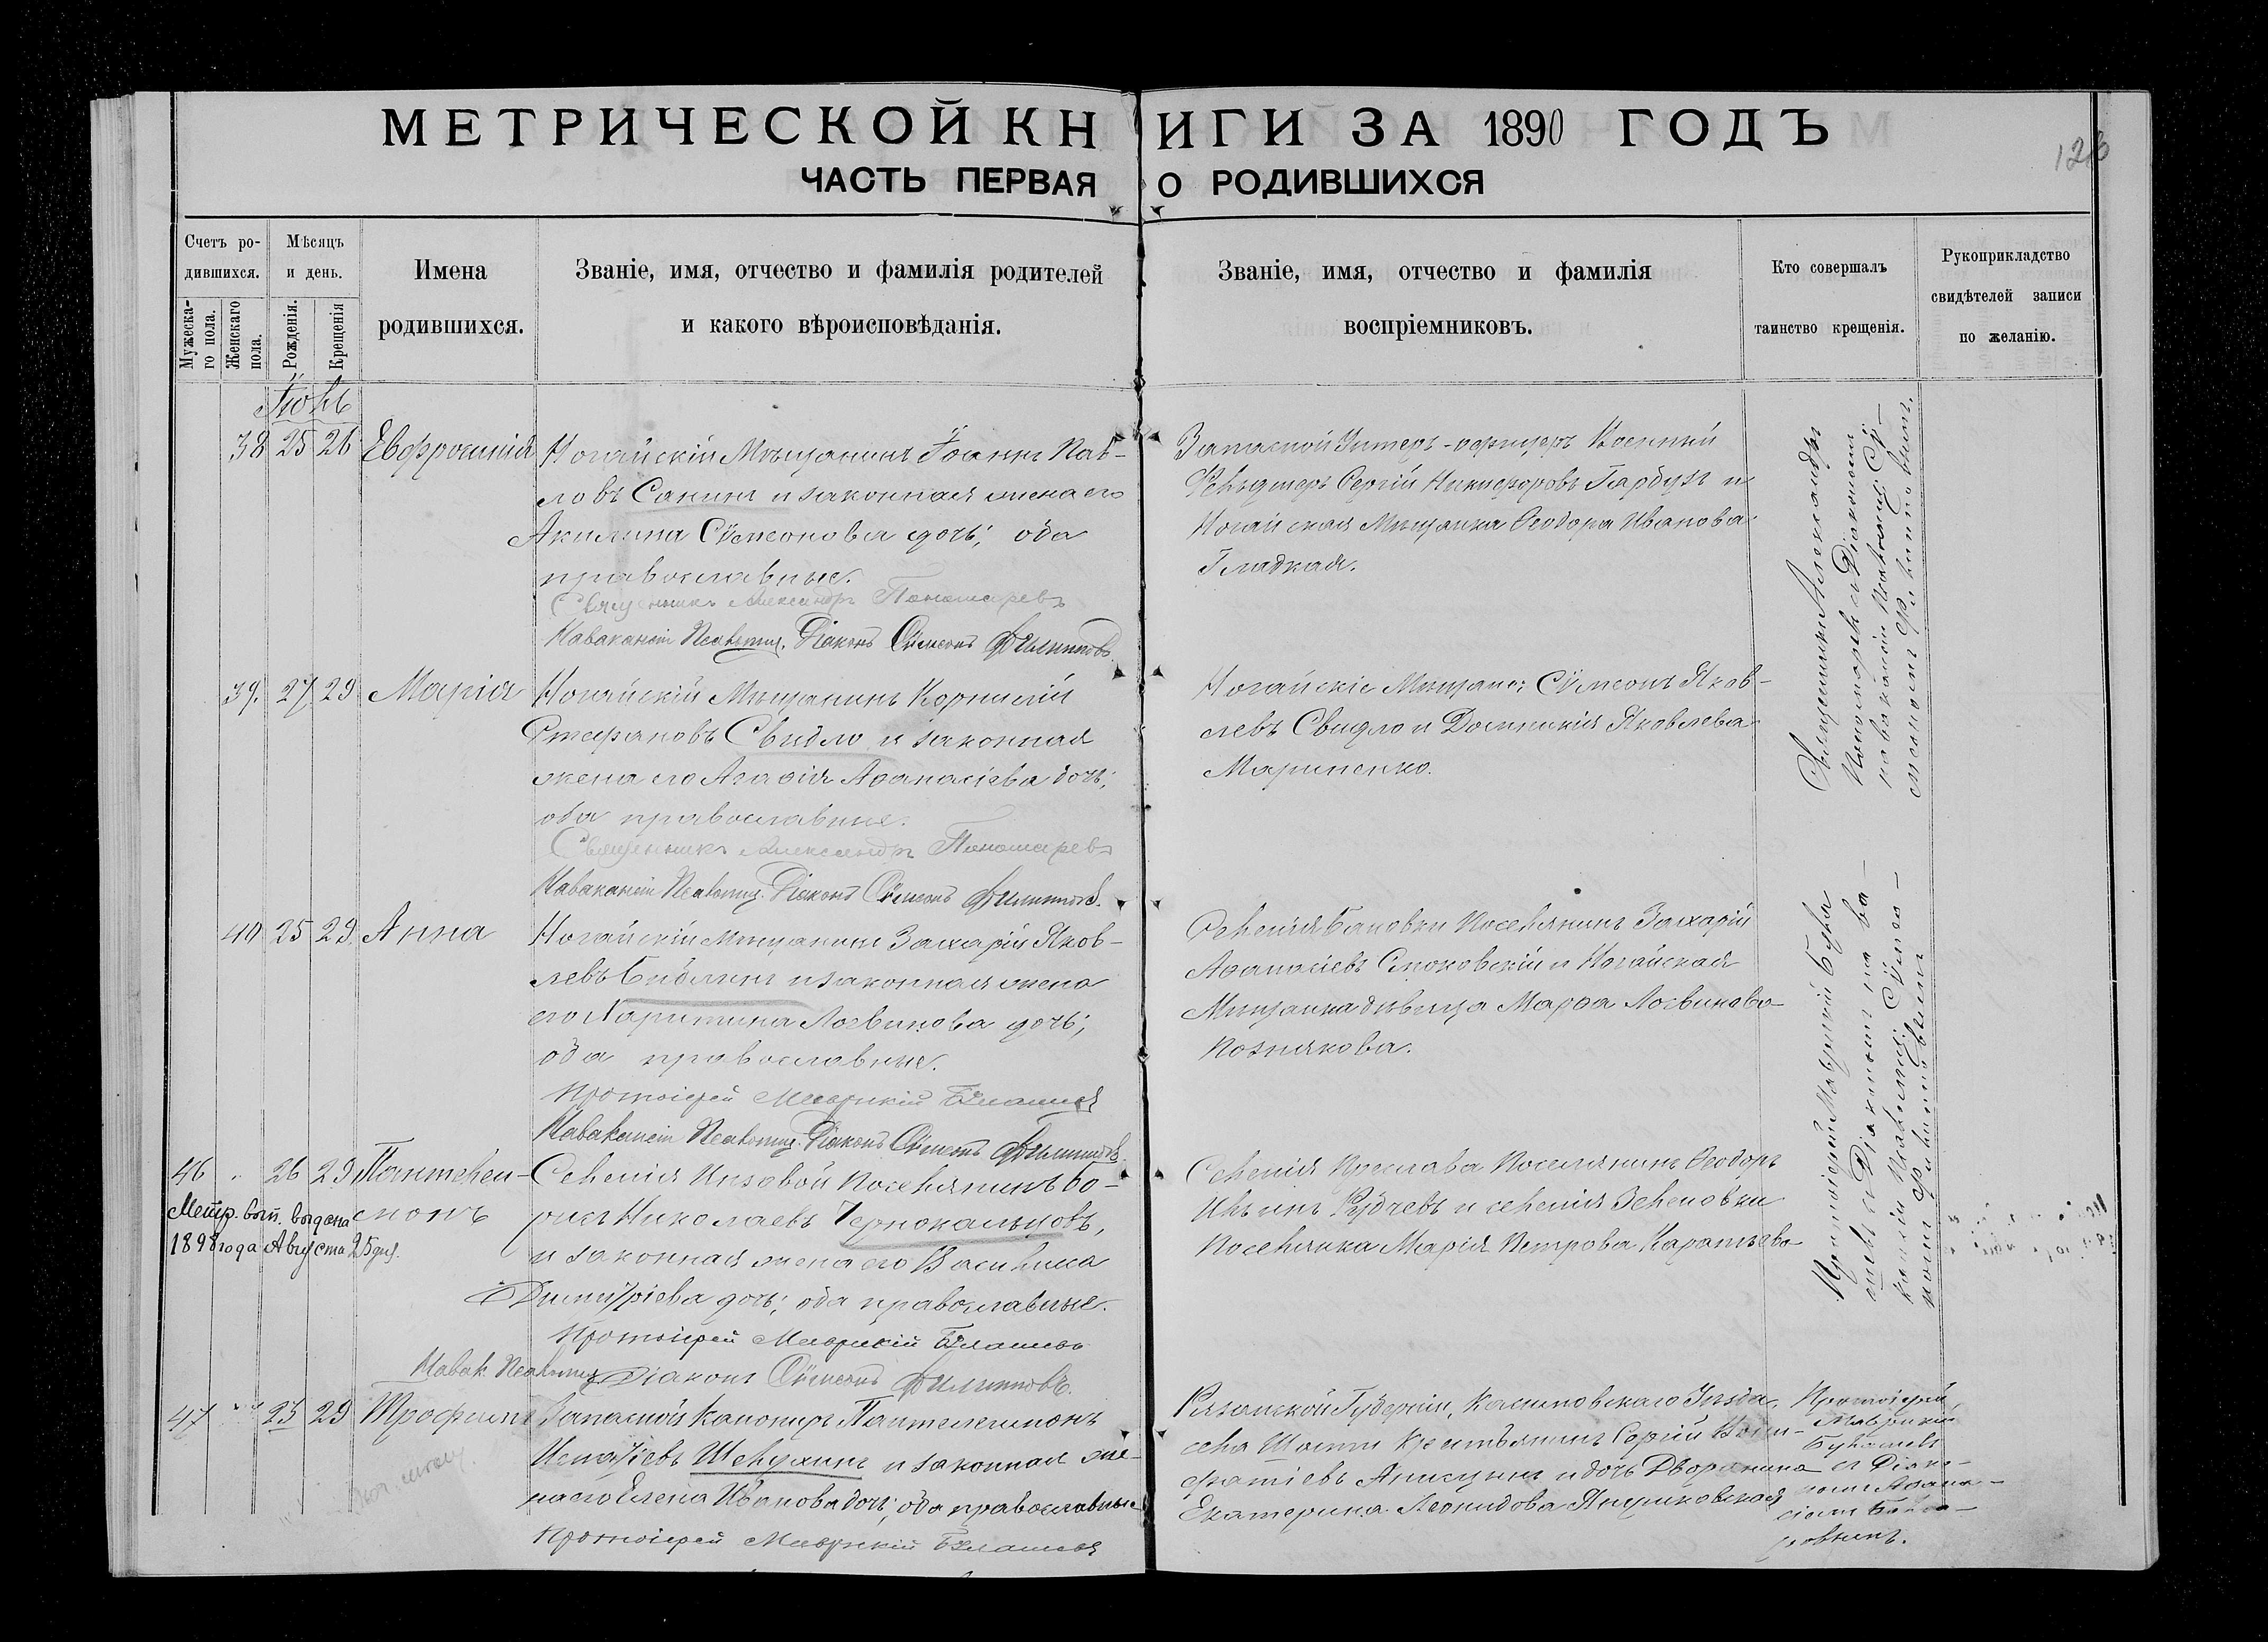 МЕТРИЧЕСКОЙ КНИГИ ЗА 1890 ГОДЪ
126
ЧАСТЬ ПЕРВАЯ О РОДИВШИХСЯ
Счетъ ро-
дившихся.
Мужеска-
го пола.
Женскаго
пола.
Мѣсяцъ
и день.
Рожденія.
Крещенія
Имена
родившихся.
Званіе, имя, отчество и фамилія родителей
и какого вѣроисповѣданія.
Званіе, имя, отчество и фамилія
воспріемниковъ.
Кто совершалъ
таинство крещенія.
Рукоприкладство
свидѣтелей записи
по желанію.
Іюнь
38 25 26 Евфросинія
Ногайскій Мѣщанинъ Іоаннъ Пав-
ловъ Санинъ и законная жена его
Акилина Сѵмеонова дочь; оба
православные.
Священникъ Александръ Пономаревъ
Діаконъ Сѵмеонъ Филипповъ
Запасной Унтеръ-офицеръ Военный
Фельдшеръ Сергій Никифоровъ Гарбузъ и
Ногайская Мѣщанка Ѳеодора Иванова
Гладкая.
Священникъ Александръ
Пономаревъ съ Діакономъ
на вакансіи Псаломщ. Сѵ-
меономъ Филипповымъ.
39. 27 29 Марія
Ногайскій Мѣщанинъ Корнилій
Стефановъ Свидло и законная
жена его Агаѳія Аѳанасіева дочь;
оба православные.
Священникъ Александръ Пономаревъ
Діаконъ Сѵмеонъ Филипповъ.
Ногайскіе Мѣщане: Сѵмеонъ Яков-
левъ Свидло и Домникія Яковлева
Мариненко.
40 25 29 Анна
Ногайскій Мѣщанинъ Захарій Яков-
левъ Бидлинъ и законная жена
его Харитина Логвинова дочь;
оба православные.
Протоіерей Маврикій
Діаконъ Сѵмеонъ Филипповъ.
Селенія Бановки Поселянинъ Захарій
Аѳанасіевъ Смоковскій и Ногайская
Мѣщанка дѣвица Марѳа Логвинова
Познякова.
Протоіерей Маврикій
съ Діакономъ на ва-
кансіи Псаломщ. Сѵмео-
номъ Филипповымъ
46 " 26 29 Пантелеи-
монъ
Метр. вып. выдана
1898 года Августа 25 дня.
Селенія Инзовой Поселянинъ Бо-
рисъ Николаевъ Чернокальцовъ,
и законная жена его Василиса
Димитріева дочь; оба православные.
Протоіерей Маврикій
Діаконъ Сѵмеонъ Филипповъ.
Селенія Преслава Поселянинъ Ѳеодоръ
Ильинъ Рудчевъ и селенія Зеленовки
Поселянка Марія Петрова
47 " 23 29 Трофимъ
Запасной Канониръ Пантелеимонъ
Игнатіевъ Шелухинъ и законная же-
на его Елена Иванова дочь; оба православные
Протоіерей Маврикій
Рязанской Губерніи, Касимовскаго Уѣзда,
села Шости Крестьянинъ Сергій Вони-
фатіевъ Анисцынъ и дочь Дворянина
Екатерина Леонидова
Протоіерей
Маврикій
съ Діако-
номъ Аѳана-
сіемъ